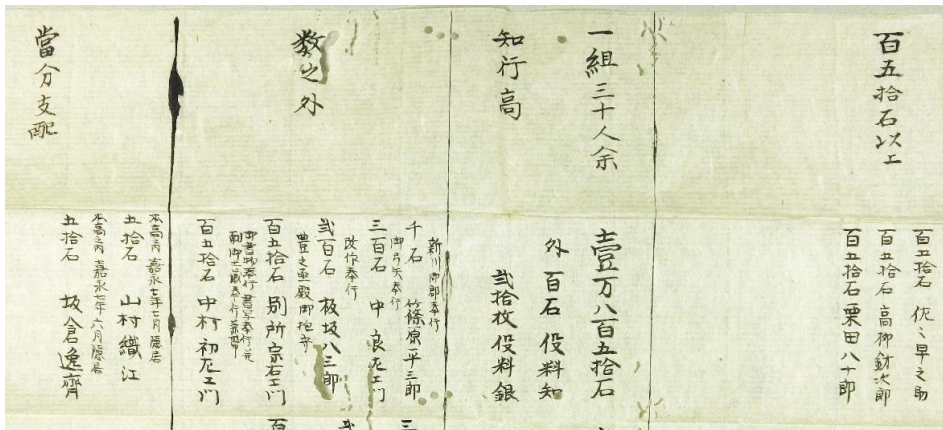 百五拾石以上
百五拾石 佐々早之助
百五拾石 高柳鈁次郎
百五拾石 栗田八十郎
一組三十人余
知行高
壹万八百五拾石
外 百石 役料知
弐拾枚 役料銀
数之外
新川御郡奉行
千石 篠原平三郎
御弓矢奉行
三百石 中 良左エ門
改作奉行
弐百石 板坂八三郎
豊之丞殿御抱守
百五拾石 別所宗右エ門
百五拾石 中村初左エ門
當分支配
本高内 嘉永七年七月隠居
五拾石 山村織江
本高之内 嘉永七年六月隠居
五拾石 坂倉逸齊